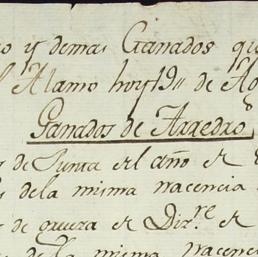 o y demas Ganados qu
l Alamo hoy 19 de Ao
Ganados de Arredro
s de Junta el año de
s dela misma nacencia
s de de Diz.re de
dela misma nacenc